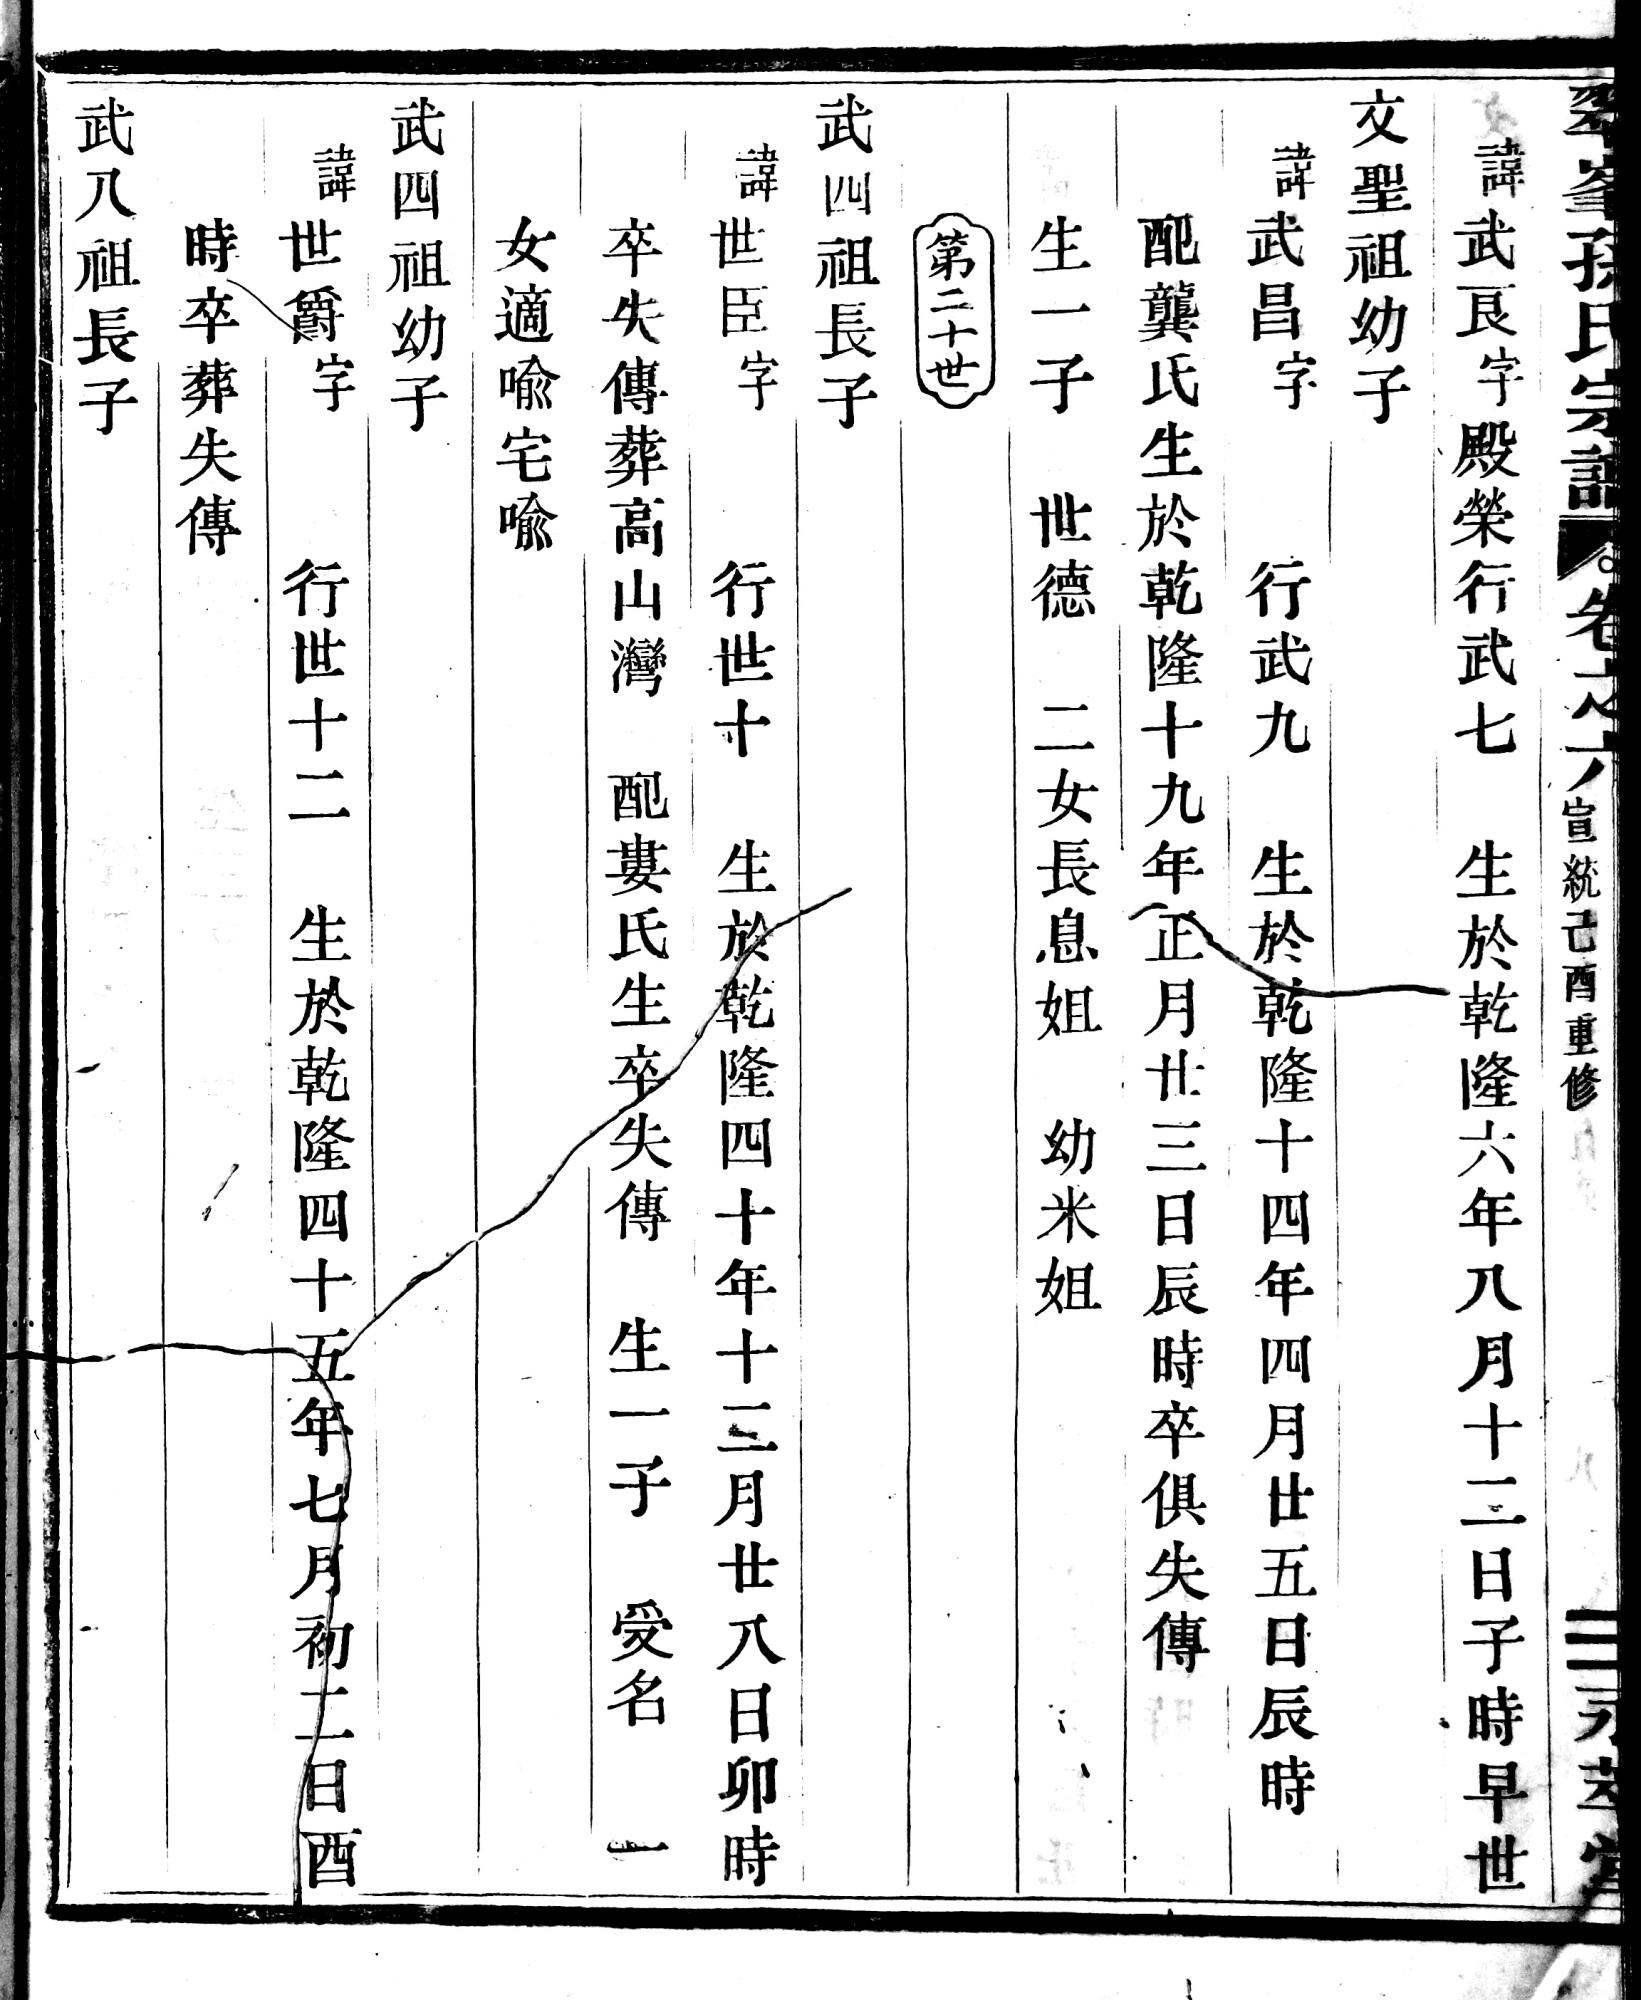 孫氏宗譜 卷之六 宣統己酉重修 二
諱武良字殿榮行武七 生於乾隆六年八月十二日子時早世
文聖祖幼子
諱武昌字 行武九 生於乾隆十四年四月廿五日辰時
配龔氏生於乾隆十九年正月廿三日辰時卒俱失傳
生一子 世德 二女長息姐 幼米姐
第二十世
武四祖長子
諱世臣字 行世十 生於乾隆四十年十二月廿八日卯時
卒失傳葬高山灣 配婁氏生卒失傳 生一子 受名 一
女適喻宅喻
武四祖幼子
諱世爵字 行世十二 生於乾隆四十五年七月初二日酉
時卒葬失傳
武八祖長子